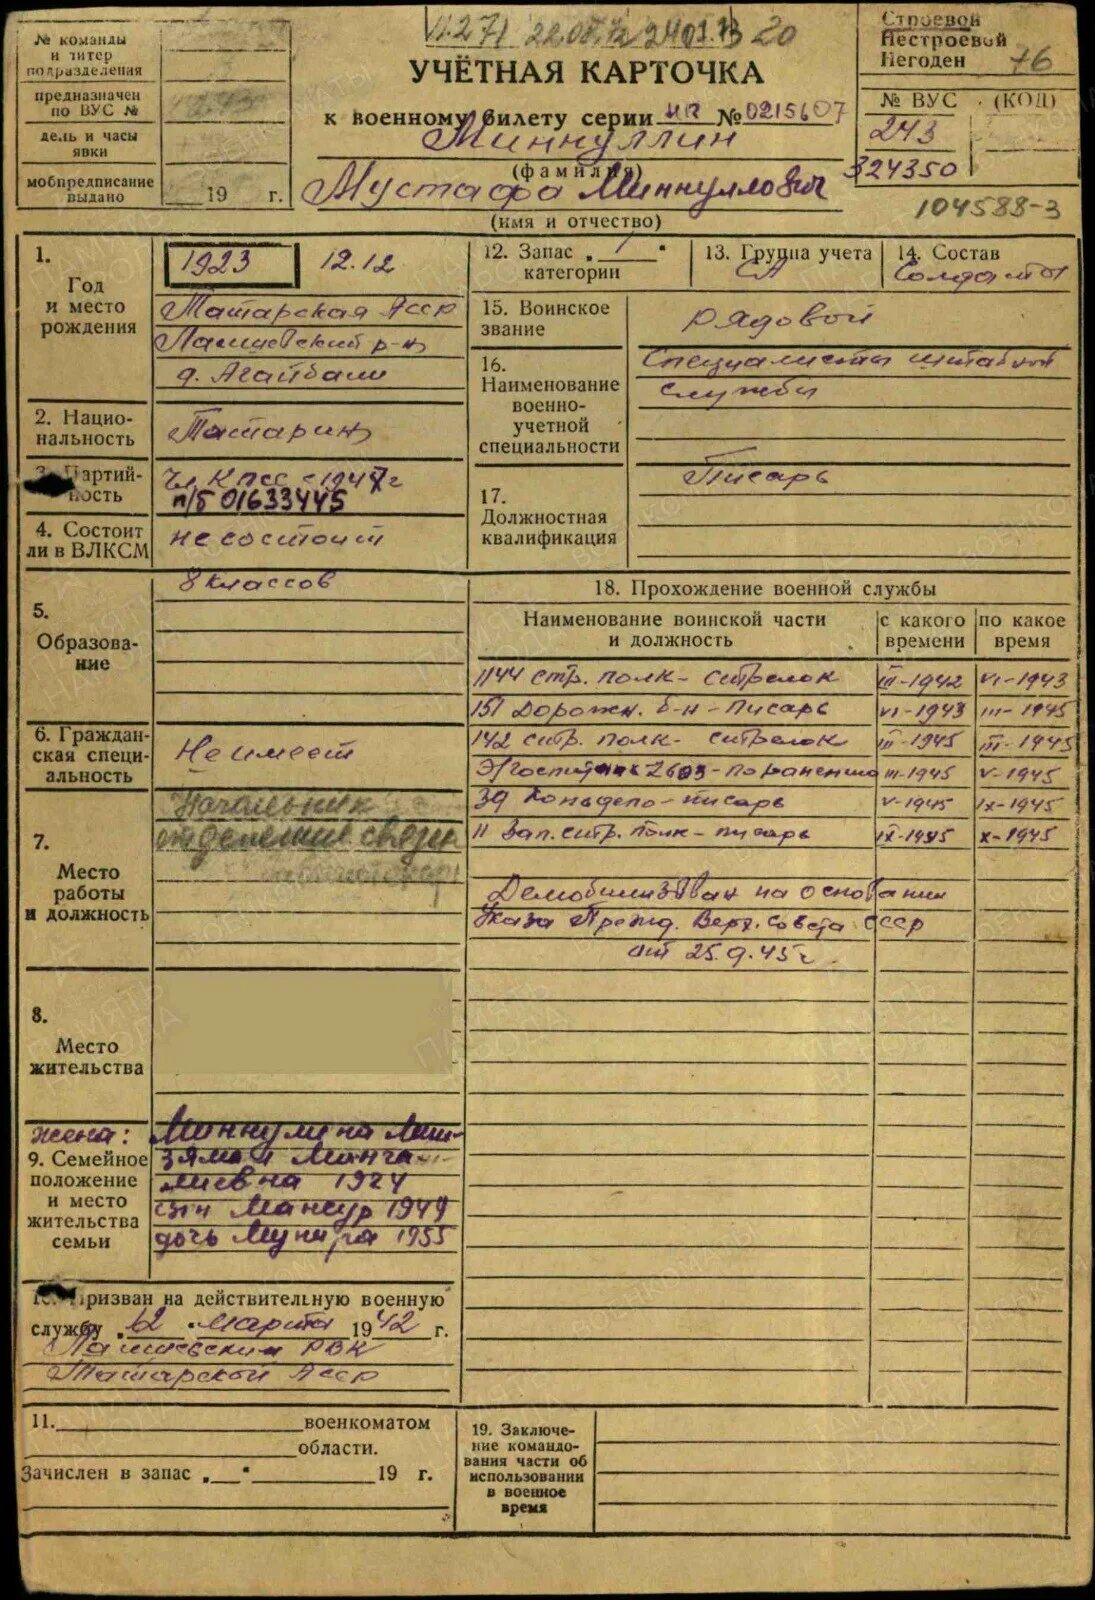 № команды
и литер
подразделения
предназначен
по ВУС №
день и часы
явки
мобпредписание
выдано
19 г.
22.08.72 24.01.73 20
УЧЁТНАЯ КАРТОЧКА
к военному билету серии НП № 0215607
Миннуллин
(фамилия)
Мустафа Миннуллович
(имя и отчество)
Строевой
Нестроевой
Негоден
76
№ ВУС (КОД)
243
324350
104588-3
1.
Год
и место
рождения
1923 12.12
Татарская АССР
Лаишевский р-н
д. Агайбаш
2. Нацио-
нальность
Татарин
3. Партий-
ность
Чл. КПСС с 1947г
п/б 01633445
4. Состоит
ли в ВЛКСМ
не состоит
5.
Образова-
ние
8 классов
6. Граждан-
ская специ-
альность
Не имеет
7.
Место
работы
и должность
Начальник
отделения связи
8.
Место
жительства
жена:
9. Семейное
положение
и место
жительства
семьи
Миннулина
1924
сын Мансур 1949
дочь Мунира 1955
10. Призван на действительную военную
службу „12" марта 1942 г.
Лаишевским РВК
Татарской АССР
11. военкоматом
области.
Зачислен в запас „ " 19 г.
12. Запас „1"
категории
13. Группа учета
СА
14. Состав
Солдаты
15. Воинское
звание
рядовой
16.
Наименование
военно-
учетной
специальности
Специалисты штабной
службы
17.
Должностная
квалификация
Писарь
18. Прохождение военной службы
Наименование воинской части
и должность
с какого
времени
по какое
время
1144 стр. полк - стрелок III-1942 VI-1943
151 Дорожн. б-н - писарь VI-1943 III-1945
142 стр. полк - стрелок III-1945 III-1945
Э/госпиталь 2603 - по ранению III-1945 V-1945
39 Конадепо - писарь V-1945 IX-1945
11 Зап. стр. полк - писарь IX-1945 X-1945
Демобилизован на основании
Указа През. Верх. Совета СССР
от 25.9.45г.
19. Заключе-
ние командо-
вания части об
использовании
в военное
время